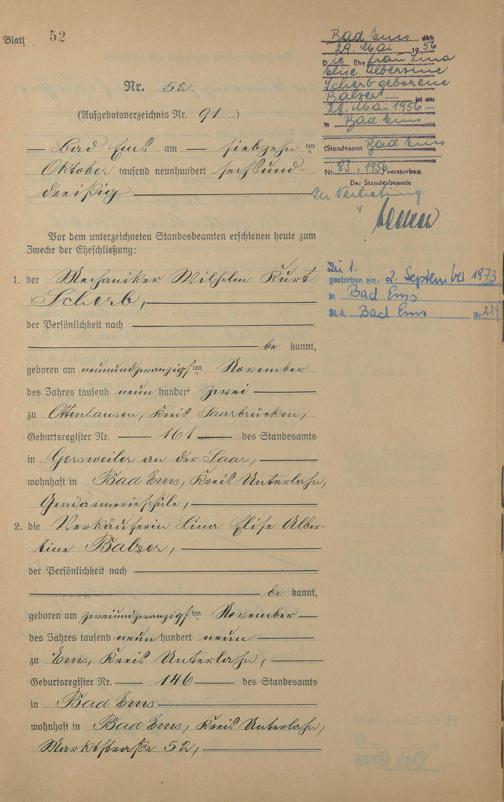 Blatt 52
Nr. 52
(Aufgebotsverzeichnis Nr. 91)
Bad Ems am siebzehnten
Oktober tausend neunhundert sechsund-
dreißig
Vor dem unterzeichneten Standesbeamten erschienen heute zum
Zwecke der Eheschließung:
1. der Mechaniker Wilhelm Kurt
Scherb,
der Persönlichkeit nach
be kannt,
geboren am neunundzwanzigsten November
des Jahres tausend neun hundert zwei
zu Ottenhausen, Kreis Saarbrücken,
Geburtsregister Nr. 161 des Standesamts
in Gersweiler an der Saar,
wohnhaft in Bad Ems, Kreis Unterlahn,
Gendarmerieschule,
2. die Verkäuferin Lina Elise Alber-
tine Balzer,
der Persönlichkeit nach
be kannt,
geboren am zweiundzwanzigsten November
des Jahres tausend neun hundert neun
zu Ems, Kreis Unterlahn,
Geburtsregister Nr. 146 des Standesamts
in Bad Ems
wohnhaft in Bad Ems, Kreis Unterlahn,
Marktstraße 52,
Bad Ems, den
29. Mai 1956
Die Ehefrau Lina
Elise Albertine
Scherb geborene
Balzer ist am
28. Mai 1956
in Bad Ems
(Standesamt Bad Ems
Nr. 83, 1956 verstorben.
Der Standesbeamte
In Vertretung:
Zu 1.
gestorben am: 2. September 1973
in Bad Ems
St.A. Bad Ems Nr. 229